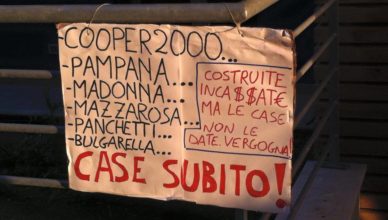 COOPER2000...
-PAMPANA...
-MADONNA...
-MAZZAROSA...
-PANCHETTI...
-BULGARELLA...
COSTRUITE
INCA$$AT€
MA LE CASE
NON LE
DATE. VERGOGNA!
CASE SUBITO!